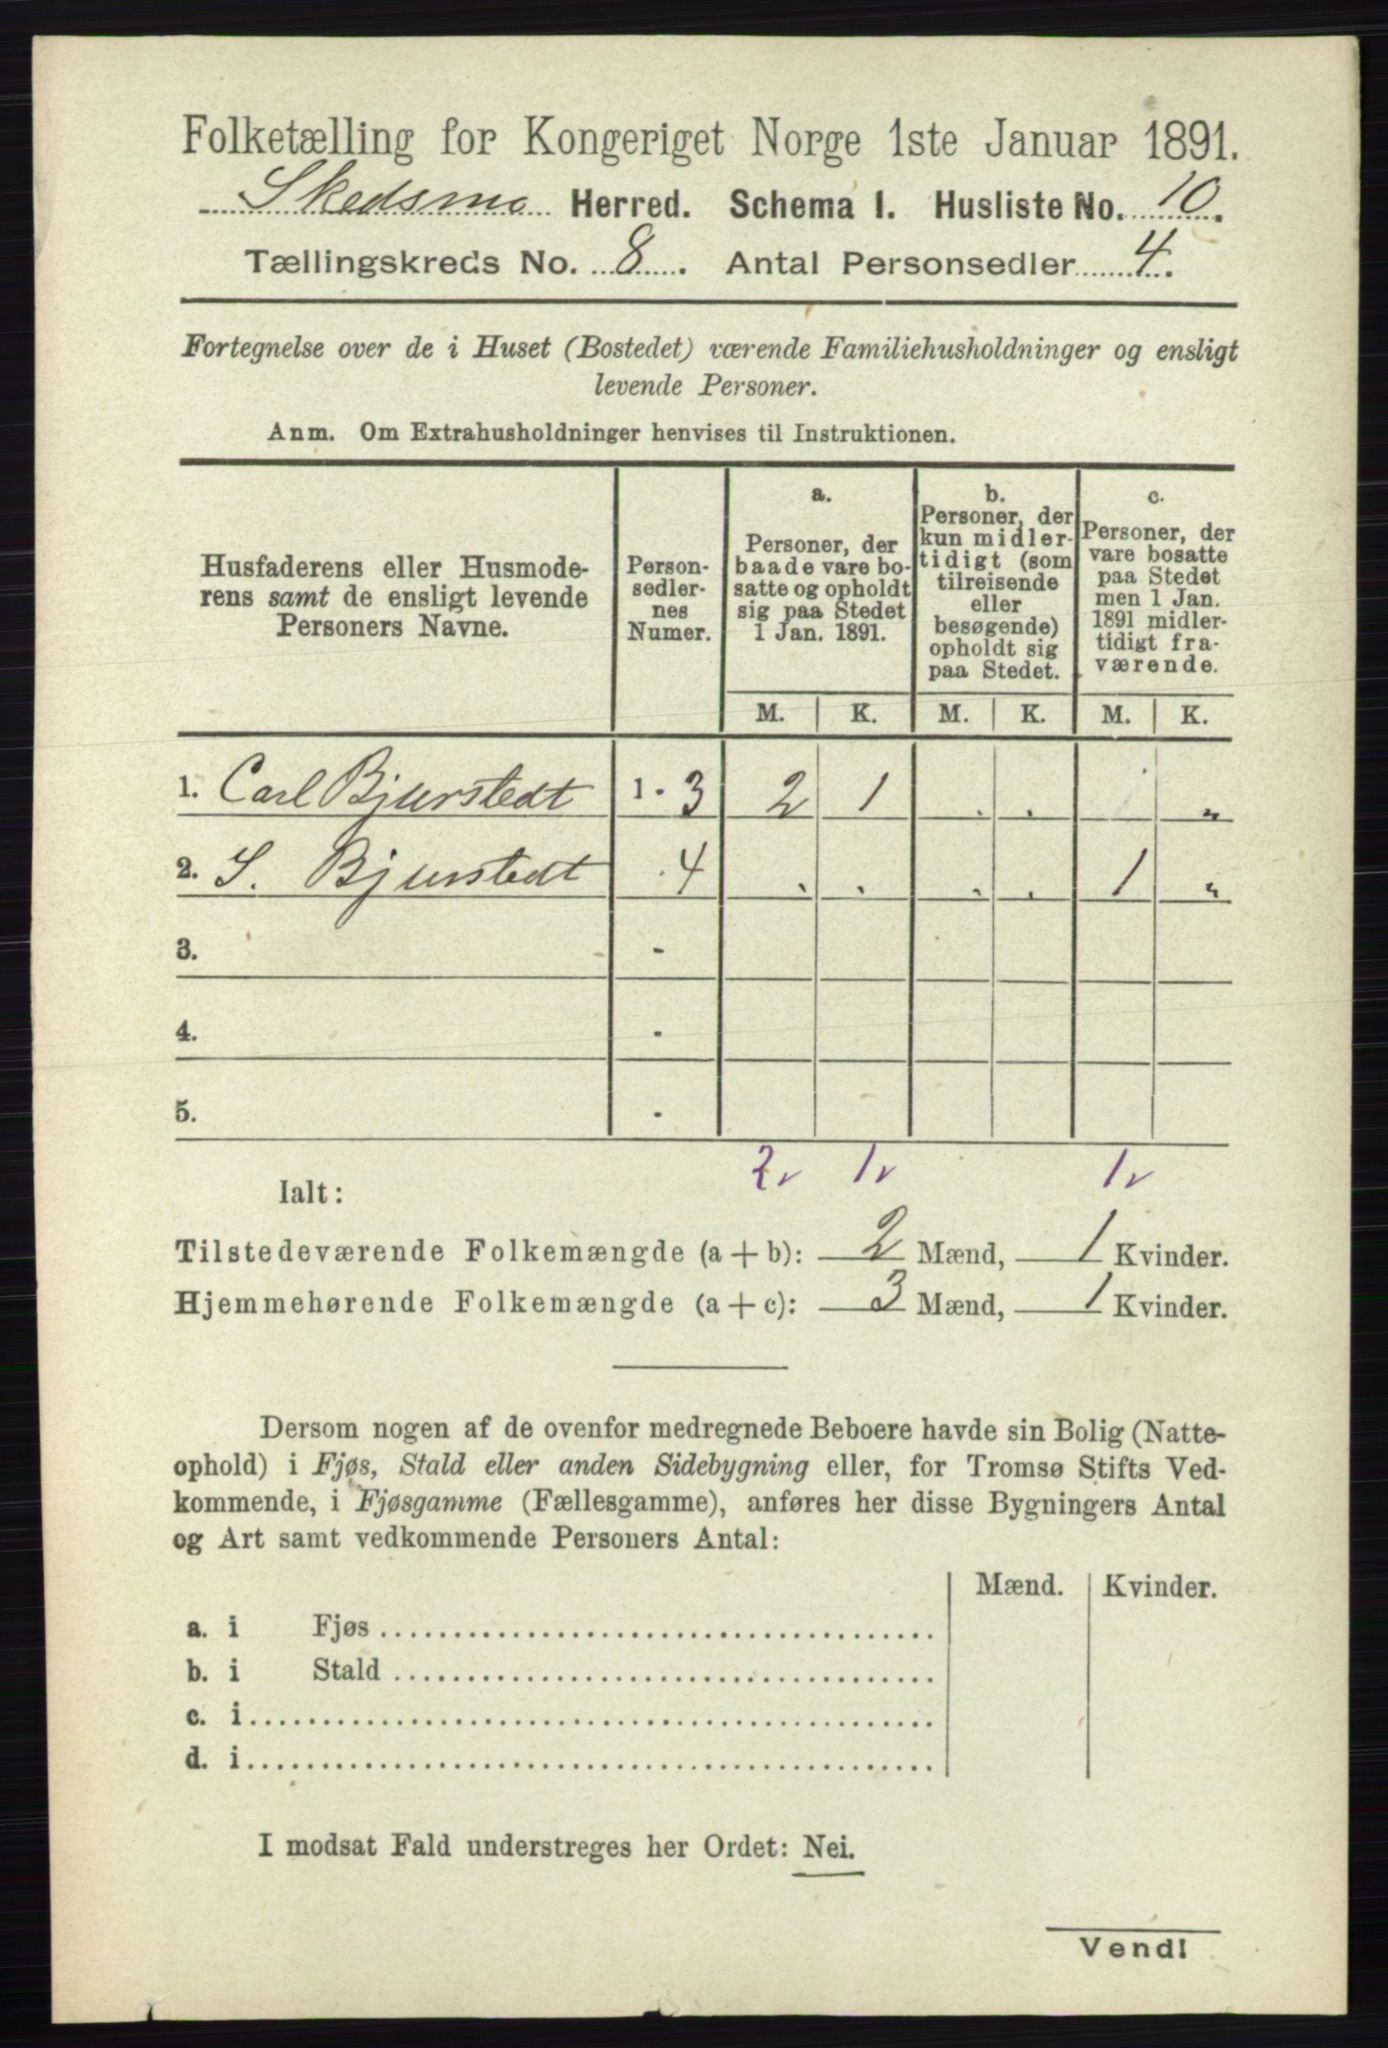 Folketælling for Kongeriget Norge 1ste Januar 1891.
Skedsmo Herred. Schema I. Husliste No. 10.
Tællingskreds No. 8. Antal Personsedler 4.
Fortegnelse over de i Huset (Bostedet) værende Familiehusholdninger og ensligt
levende Personer.
Anm. Om Extrahusholdninger henvises til Instruktionen.
Husfaderens eller Husmode-
rens samt de ensligt levende
Personers Navne.
Person-
sedler-
nes
Numer.
a.
Personer, der
baade vare bo-
satte og opholdt
sig paa Stedet
1 Jan. 1891.
b.
Personer, der
kun midler-
tidigt (som
tilreisende
eller
besøgende)
opholdt sig
paa Stedet.
c.
Personer, der
vare bosatte
paa Stedet
men 1 Jan.
1891 midler-
tidigt fra-
værende.
M. K. M. K. M. K.
1. Carl Bjurstedt 1 - 3 2 1 . . „
2. S. Bjurstedt 4 . . . . 1 „
3. -
4. -
5. -
2 1 1
Ialt:
Tilstedeværende Folkemængde (a + b): 2 Mænd, 1 Kvinder.
Hjemmehørende Folkemængde (a + c): 3 Mænd, 1 Kvinder.
Dersom nogen af de ovenfor medregnede Beboere havde sin Bolig (Natte-
ophold) i Fjøs, Stald eller anden Sidebygning eller, for Tromsø Stifts Ved-
kommende, i Fjøsgamme (Fællesgamme), anføres her disse Bygningers Antal
og Art samt vedkommende Personers Antal:
Mænd. Kvinder.
a. i Fjøs
b. i Stald
c. i
d. i
I modsat Fald understreges her Ordet: Nei.
Vend!